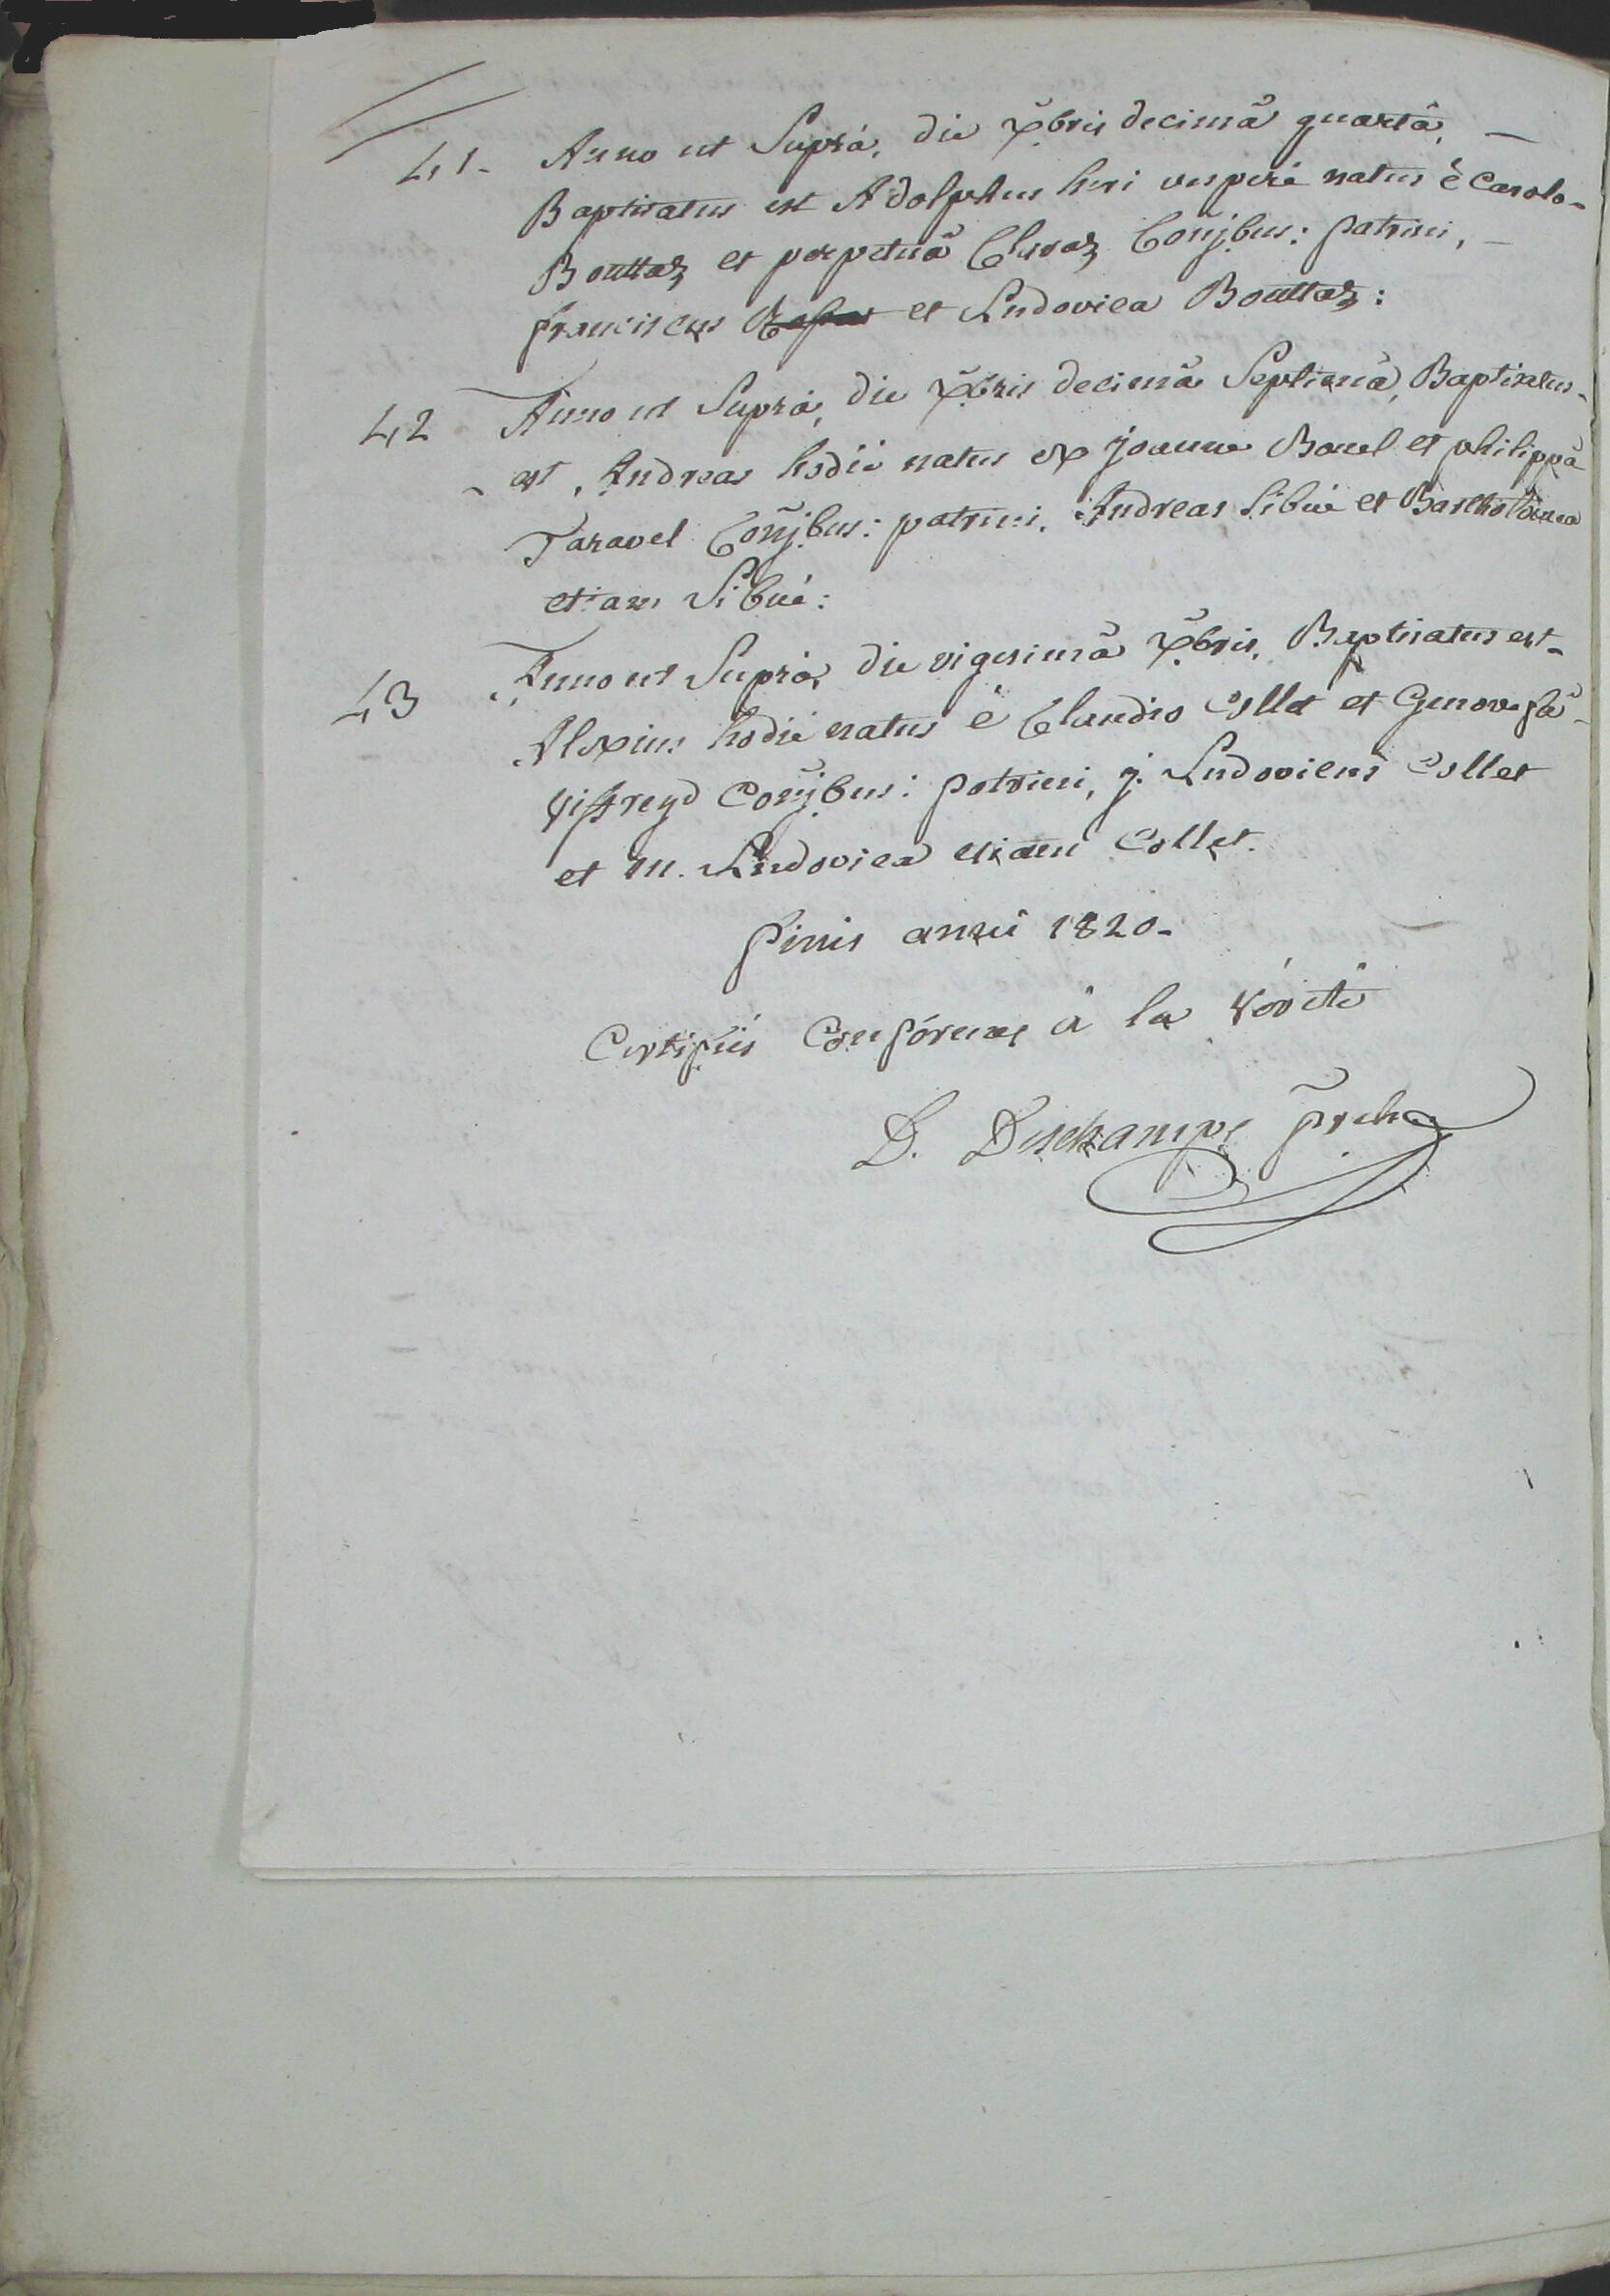 41. Anno ut Suprà, die Xbris decimâ quartâ, —
Baptisatus est Adolphus heri vesperè natus è Carolo-
Bouttaz et perpetuâ Claraz Conjbus: patrini, —
franciscus et Ludovica Bouttaz:
42 Anno ut Suprà, die Xbris decimâ Septimâ, Baptisatus-
est, Andreas hodiè natus ex joanne Borrel et philippâ
Taravel Conjbus: patrini, Andreas Sibué et Bartholomea
etiam Sibué:
43 Anno ut Suprà, die vigesimâ Xbris, Baptisatus est-
Alexius hodiè natus è Claudio Collet et Genovefâ-
Viffreyd Conjbus: patrini, j. Ludovicus Collet
et M. Ludovica etiam Collet.
finis anni 1820-
Certifiés Conformes à la Vérité
D. Deschamps